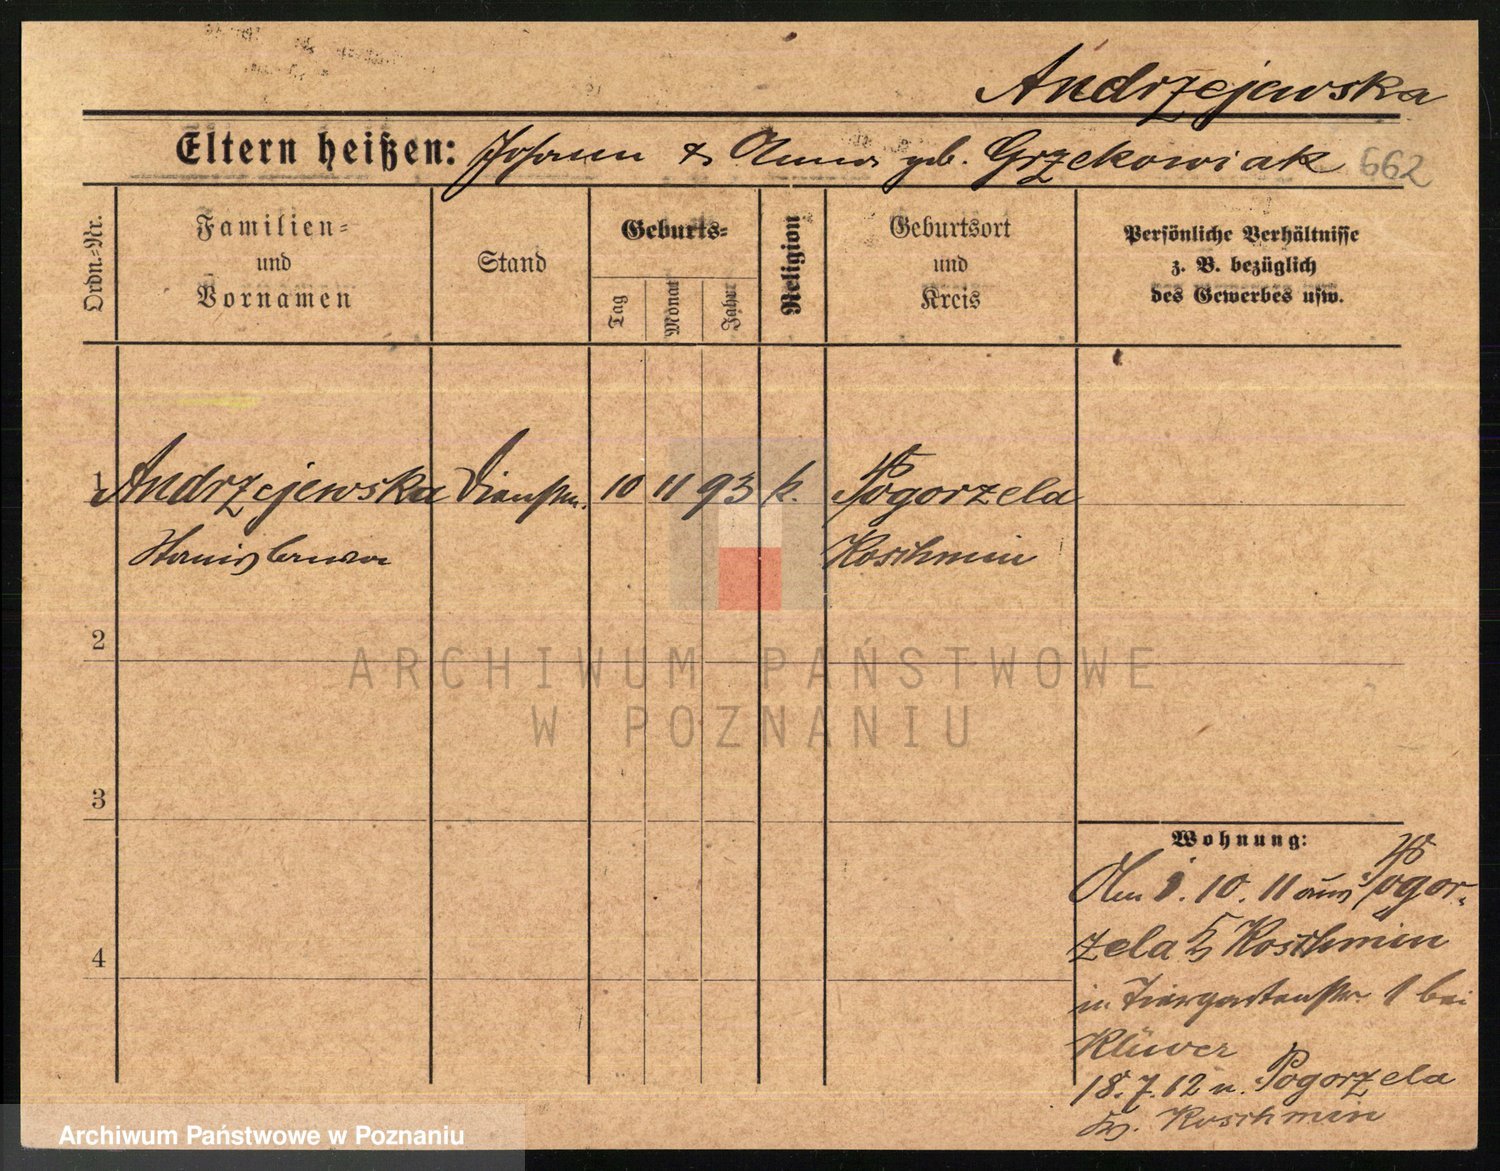 Andrzejewska
Eltern heißen: Johann & Anna geb. Grzekowiak 662
Ordn.-Nr.
Familien- und Vornamen
Stand
Geburts-
Tag
Monat
Jahr
Religion
Geburtsort und Kreis
Persönliche Verhältnisse
z. B. bezüglich
des Gewerbes usw.
1 Andrzejewska Dienstm. 10 11 93 k. Pogorzela
Stanislawa Koschmin
2
3
4
Wohnung:
Am 1. 10. 11 aus Pogor-
zela Koschmin
in Tiergartenstr. 1 bei
Klüwer
18. 7. 12 n. Pogorzela
Koschmin
ARCHIWUM PAŃSTWOWE
W POZNANIU
Archiwum Państwowe w Poznaniu